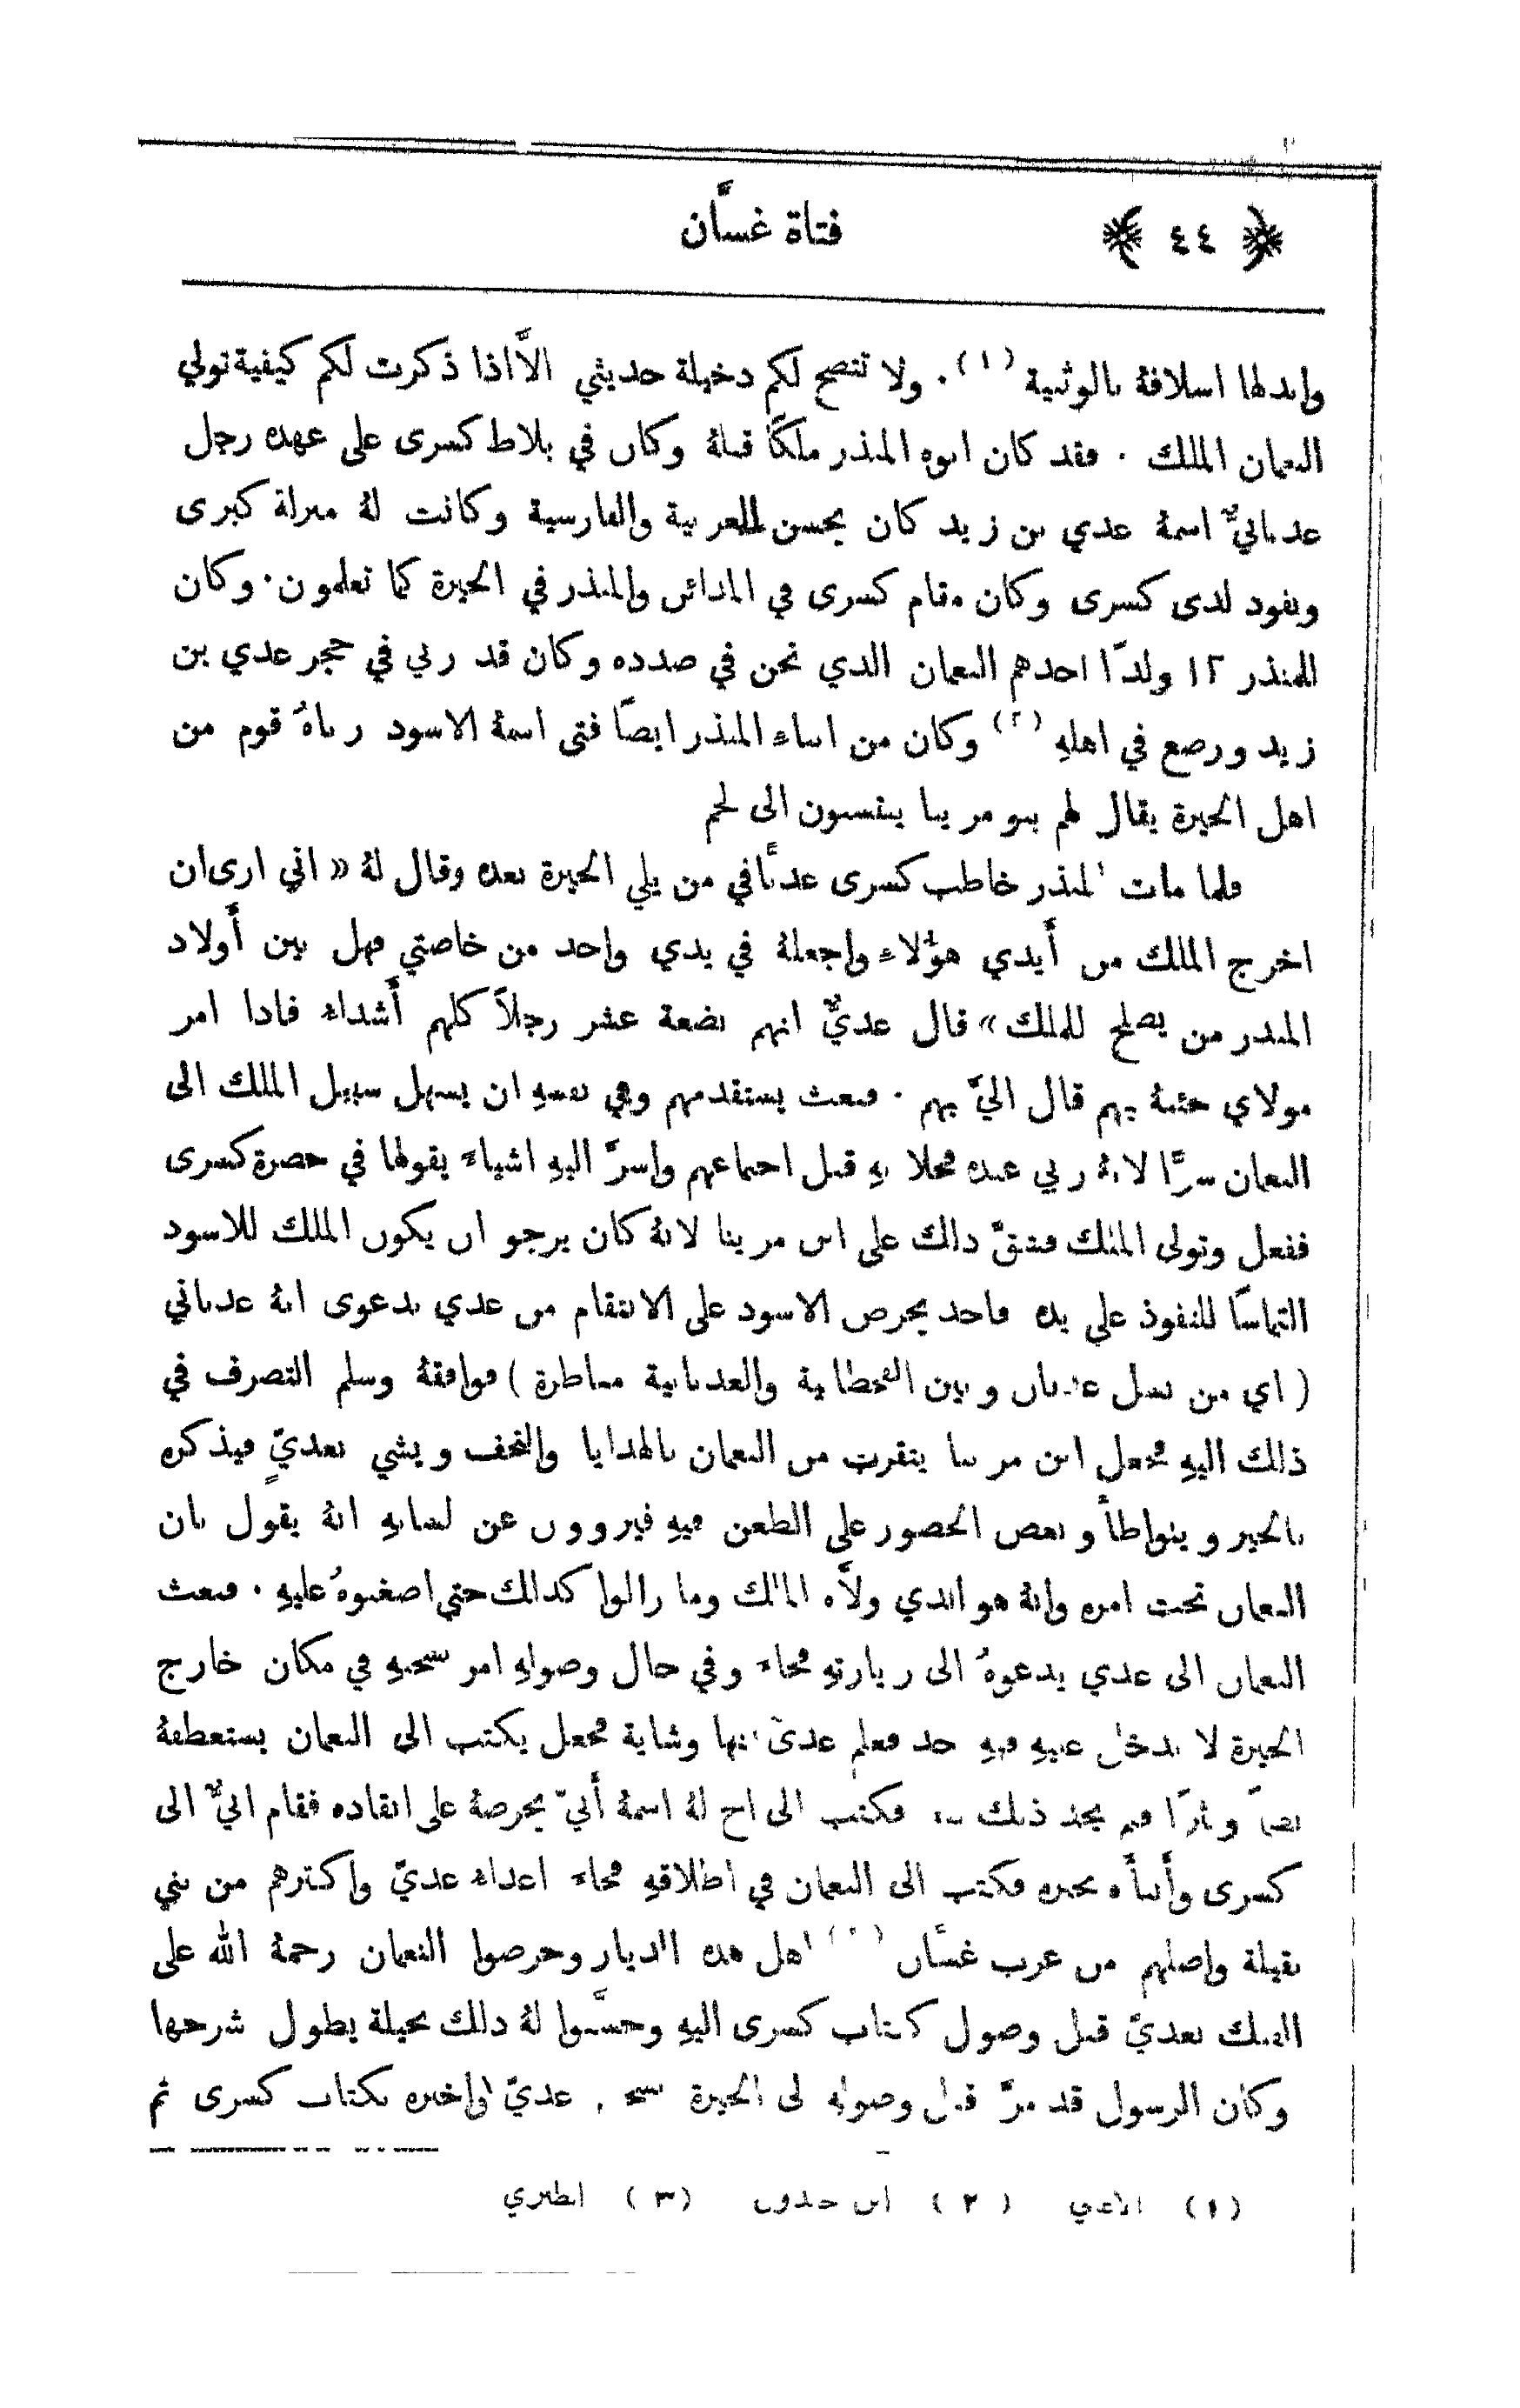 ﴿ ٤٤ ﴾ فتاة غسَّان
وابدلها اسلافهُ بالوثنية (١). ولا تتضح لكم دخيلة حديثي الَّا اذا ذكرت لكم كيفية تولي
النعمان الملك . فقد كان ابوه المنذر ملكًا قبلهُ وكان في بلاط كسرى على عهده رجل
عدنانيٌّ اسمهُ عدي بن زيد كان يحسن العربية والفارسية وكانت لهُ منزلة كبرى
ونفوذ لدى كسرى وكان مقام كسرى في المدائن والمنذر في الحيرة كما تعلمون . وكان
للمنذر ١٢ ولدًا احدهم النعمان الذي نحن في صدده وكان قد ربي في حجر عدي بن
زيد ورضع في اهلهِ (٢) وكان من ابناء المنذر ايضًا فتى اسمهُ الاسود رباهُ قوم من
اهل الحيرة يقال لهم بنو مرينا ينتسبون الى لخم
فلما مات المنذر خاطب كسرى عديًّا في من يلي الحيرة بعده وقال لهُ « اني ارى ان
اخرج الملك من أيدي هؤلاء واجعلهُ في يدي واحد من خاصتي فهل بين أولاد
المنذر من يصلح للملك » قال عديٌّ انهم بضعة عشر رجلاً كلهم أشداء فاذا امر
مولاي جئتهُ بهم قال اليَّ بهم . فبعث يستقدمهم وفي نفسهِ ان يسهل سبيل الملك الى
النعمان سرًّا لانهُ ربي عنده فخلا بهِ قبل اجتماعهم واسرَّ اليهِ اشياء يقولها في حضرة كسرى
ففعل وتولى الملك فشقَّ ذالك على ابن مرينا لانهُ كان يرجو ان يكون الملك للاسود
التماسًا للنفوذ على يده فاخذ يحرض الاسود على الانتقام من عدي بدعوى انهُ عدناني
( اي من نسل عدنان وبين القحطانية والعدنانية مناظرة ) فوافقهُ وسلم التصرف في
ذلك اليهِ فجعل ابن مرينا يتقرب من النعمان بالهدايا والتحف ويشي بعديٍّ فيذكره
بالخير ويتواطأ وبعض الحضور على الطعن فيهِ فيروون عن لسانهِ انهُ يقول بان
النعمان تحت امره وانهُ هو الذي ولَّاه الملك وما زالوا كذالك حتى اضغنوهُ عليهِ . فبعث
النعمان الى عدي يدعوهُ الى زيارتهِ فجاء وفي حال وصولهِ امر بسجنهِ في مكان خارج
الحيرة لا يدخل عليهِ فيهِ احد فعلم عديّ انها وشاية فجعل يكتب الى النعمان يستعطفهُ
نظمًا ونثرًا فلم يجد ذلك فكتب الى اخ لهُ اسمهُ أبيّ يحرضهُ على انقاذه فقام ابيٌّ الى
كسرى وأنبأه بخبره فكتب الى النعمان في اطلاقهِ فجاء اعداء عديّ واكثرهم من بني
بقيلة واصلهم من عرب غسَّان (٣) اهل هذه الديار وحرضوا النعمان رحمهُ الله على
الفتك بعديّ قبل وصول كتاب كسرى اليهِ وحسَّنوا لهُ ذلك بحيلة يطول شرحها
وكان الرسول قد مرَّ قبل وصولهِ الى الحيرة بسجن عديّ واخبره بكتاب كسرى ثم
(١) الاغاني (٢) ابن خلدون (٣) الطبري